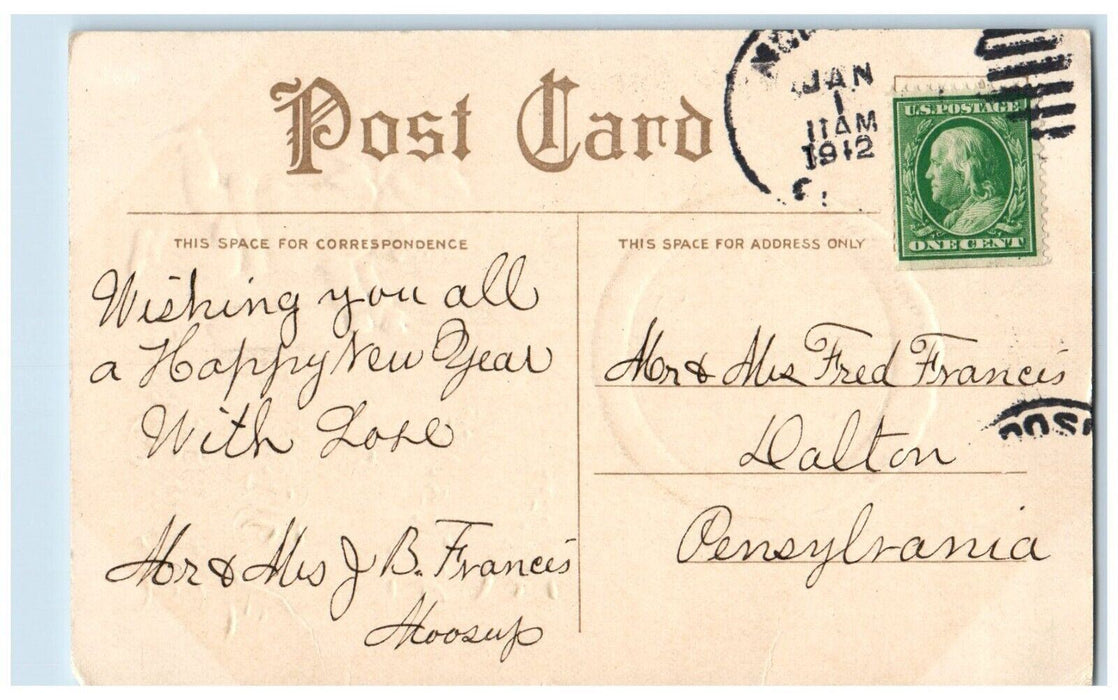 Post Card
JAN
1
11 AM
1912
U.S. POSTAGE
ONE CENT
THIS SPACE FOR CORRESPONDENCE
THIS SPACE FOR ADDRESS ONLY
Wishing you all
a Happy New Year
With Love
Mr & Mrs J B. Francis
Moosup
Mr & Mrs Fred Francis
Dalton
Pensylvania